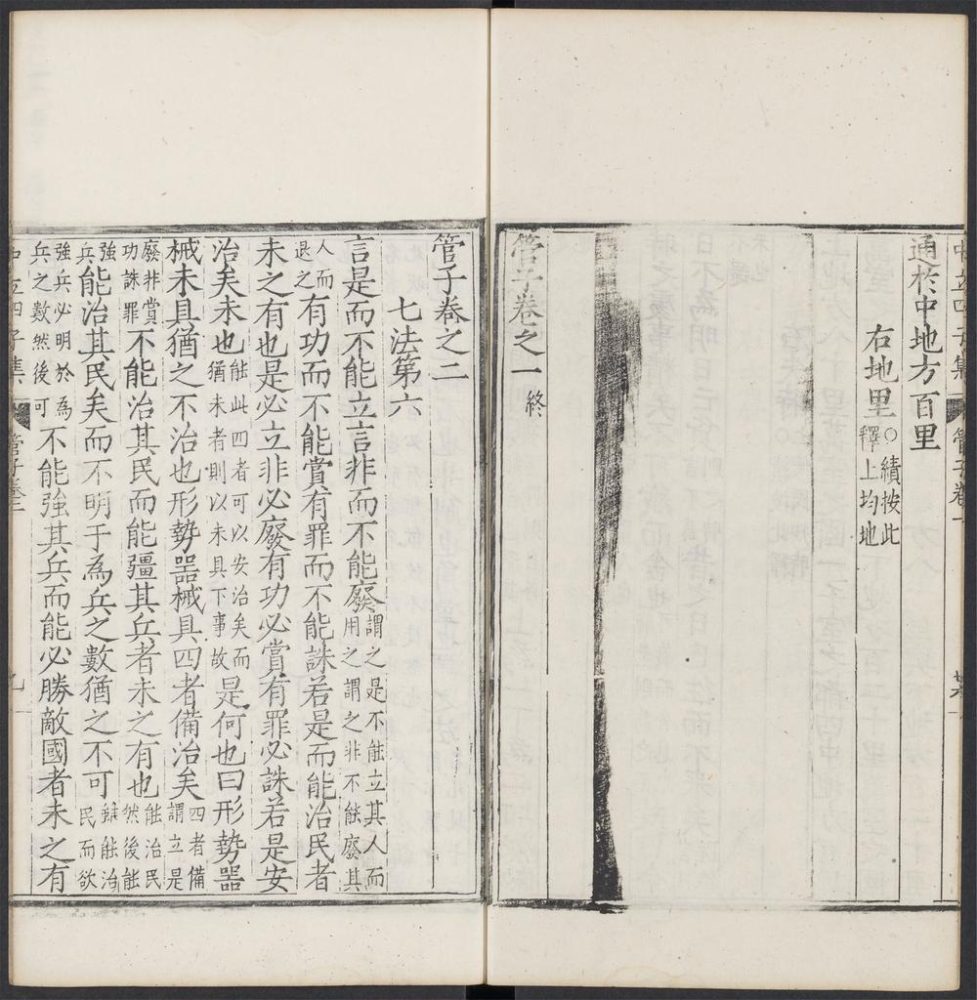 中立四子集 管子卷一
通於中地方百里
右地里○績按此釋上均地
管子卷之一終
管子卷之二
七法第六
言是而不能立言非而不能廢謂之是不能立其人而用之謂之非不能廢其
人而退之有功而不能賞有罪而不能誅若是而能治民者
未之有也是必立非必廢有功必賞有罪必誅若是安
治矣未也能此四者可以安治矣而猶未者則以未具下事故是何也曰形勢器
械未具猶之不治也形勢器械具四者備治矣四者備謂立是
廢非賞功誅罪不能治其民而能彊其兵者未之有也能治民然後能
強兵能治其民矣而不明于為兵之數猶之不可雖能治民而欲
強兵必明於為兵之數然後可不能強其兵而能必勝敵國者未之有
中立四子集 管子卷二